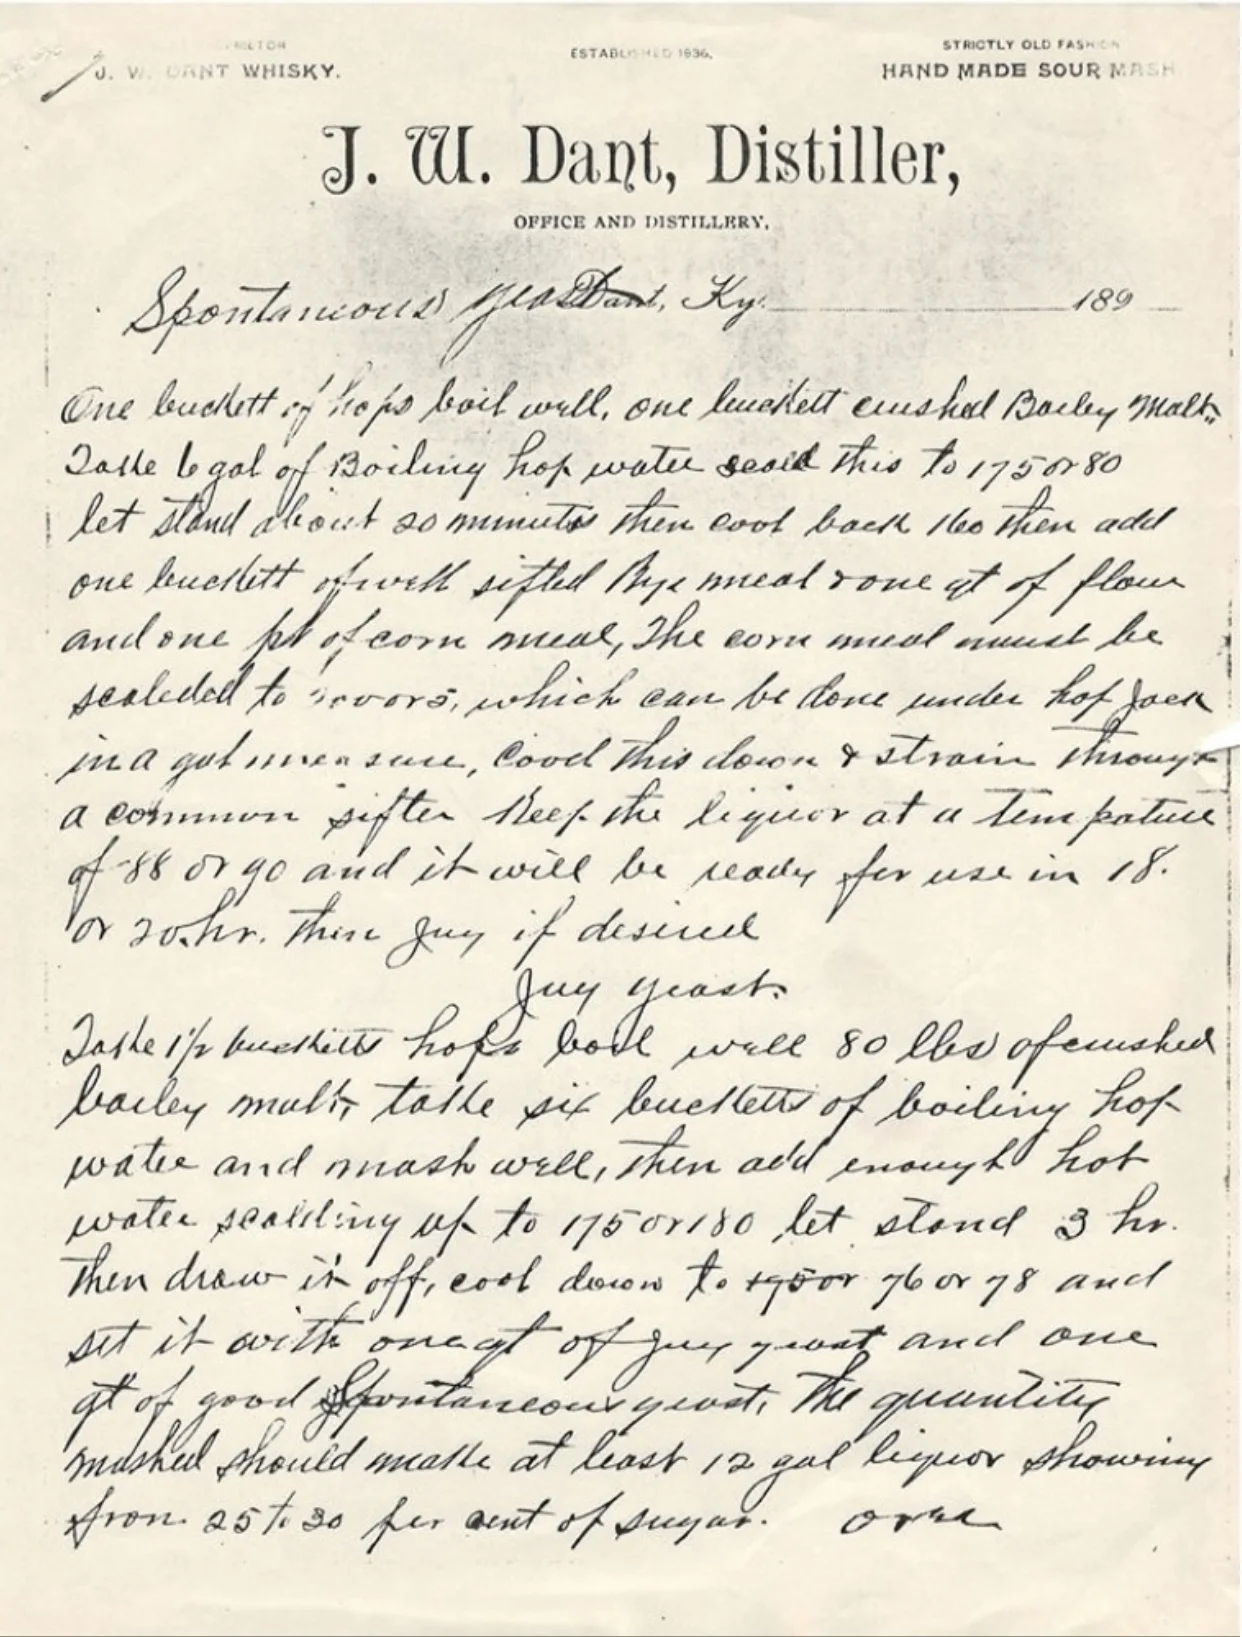 PRIETOR
J. W. DANT WHISKY.
ESTABLISHED 1836.
STRICTLY OLD FASHION
HAND MADE SOUR MASH
J. W. Dant, Distiller,
OFFICE AND DISTILLERY,
Spontaneous yeast Dant, Ky. 189
One buckett of hops boil well, one buckett crushed Barley Malt.
Take 6 gal of Boiling hop water scald this to 175 or 80
let stand about 20 minuts then cool back 160 then add
one buckett of well sifted Rye meal & one qt of flour
and one pt of corn meal, The corn meal must be
scalded to or 5, which can be done under hop Jack
in a gal measure, Cool this down & strain through
a common sifter Keep the liquor at a tempature
of 88 or 90 and it will be ready for use in 18.
or 20 hr. then Jug if desired
Jug yeast.
Take 1 1/2 bucketts hops boil well 80 lbs of crushed
barley malt, take six bucketts of boiling hop
water and mash well, then add enough hot
water scalding up to 175 or 180 let stand 3 hr.
then draw it off, cool down to 195 or 76 or 78 and
set it with one qt of Jug yeast and one
qt of good Spontaneous yeast, The quantity
mashed should make at least 12 gal liquor showing
from 25 to 30 per cent of sugar. over